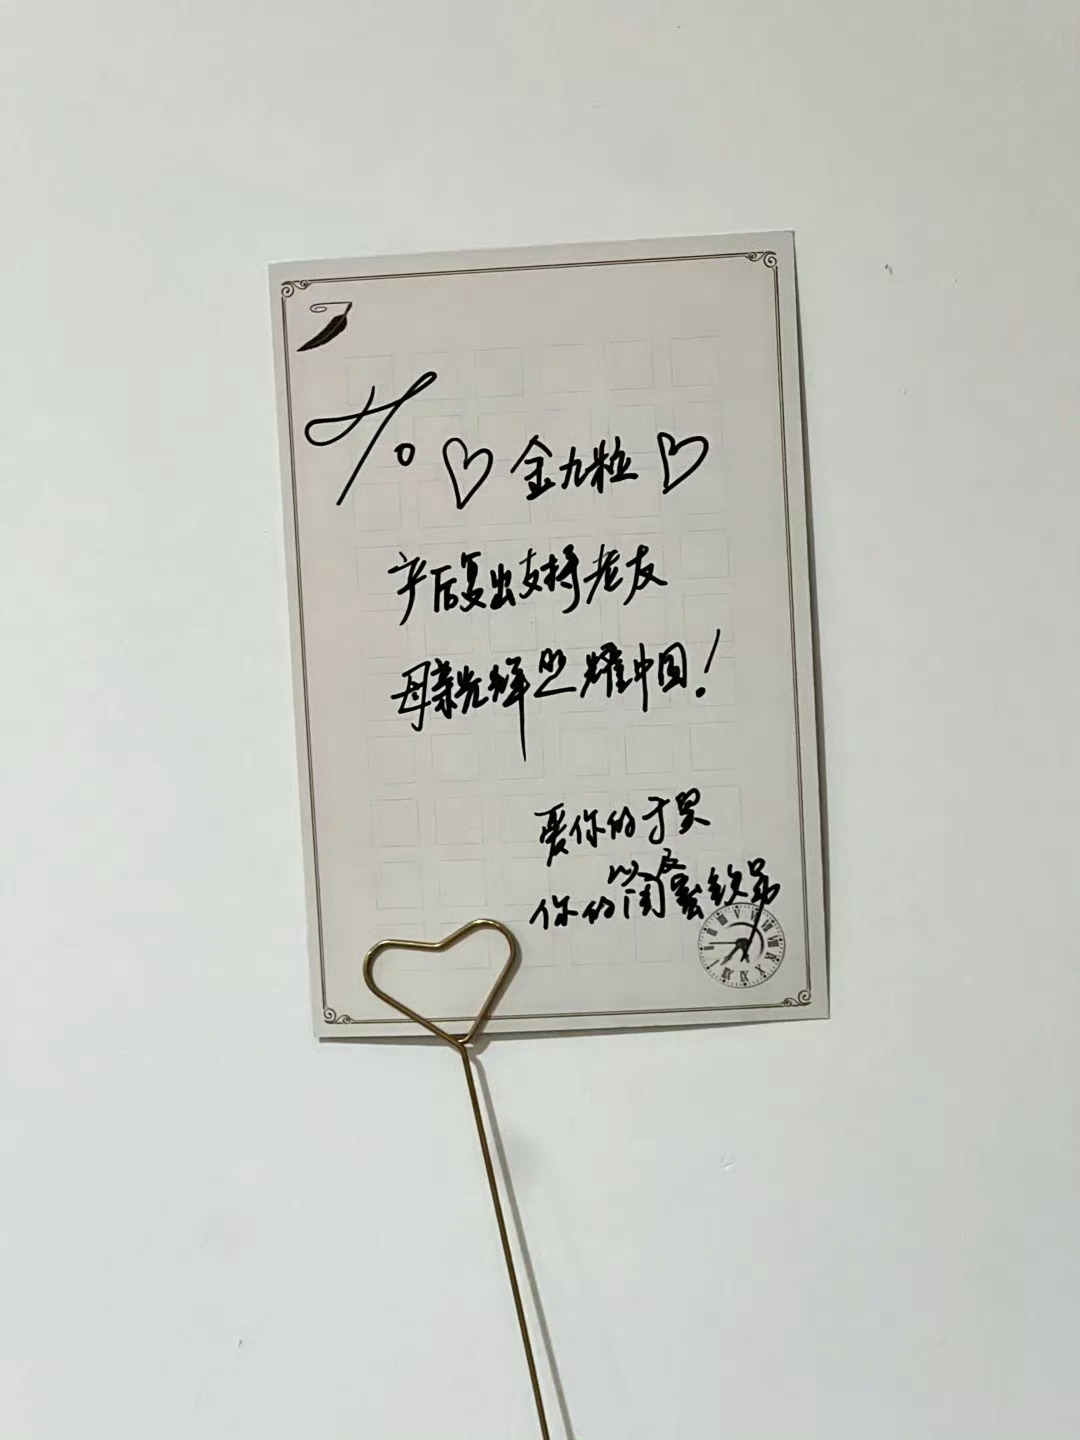 To ♡ 金九粒 ♡
产后复出支持老友
母亲光辉照耀中国！
爱你的于昊
以及
你的闺蜜钦弟